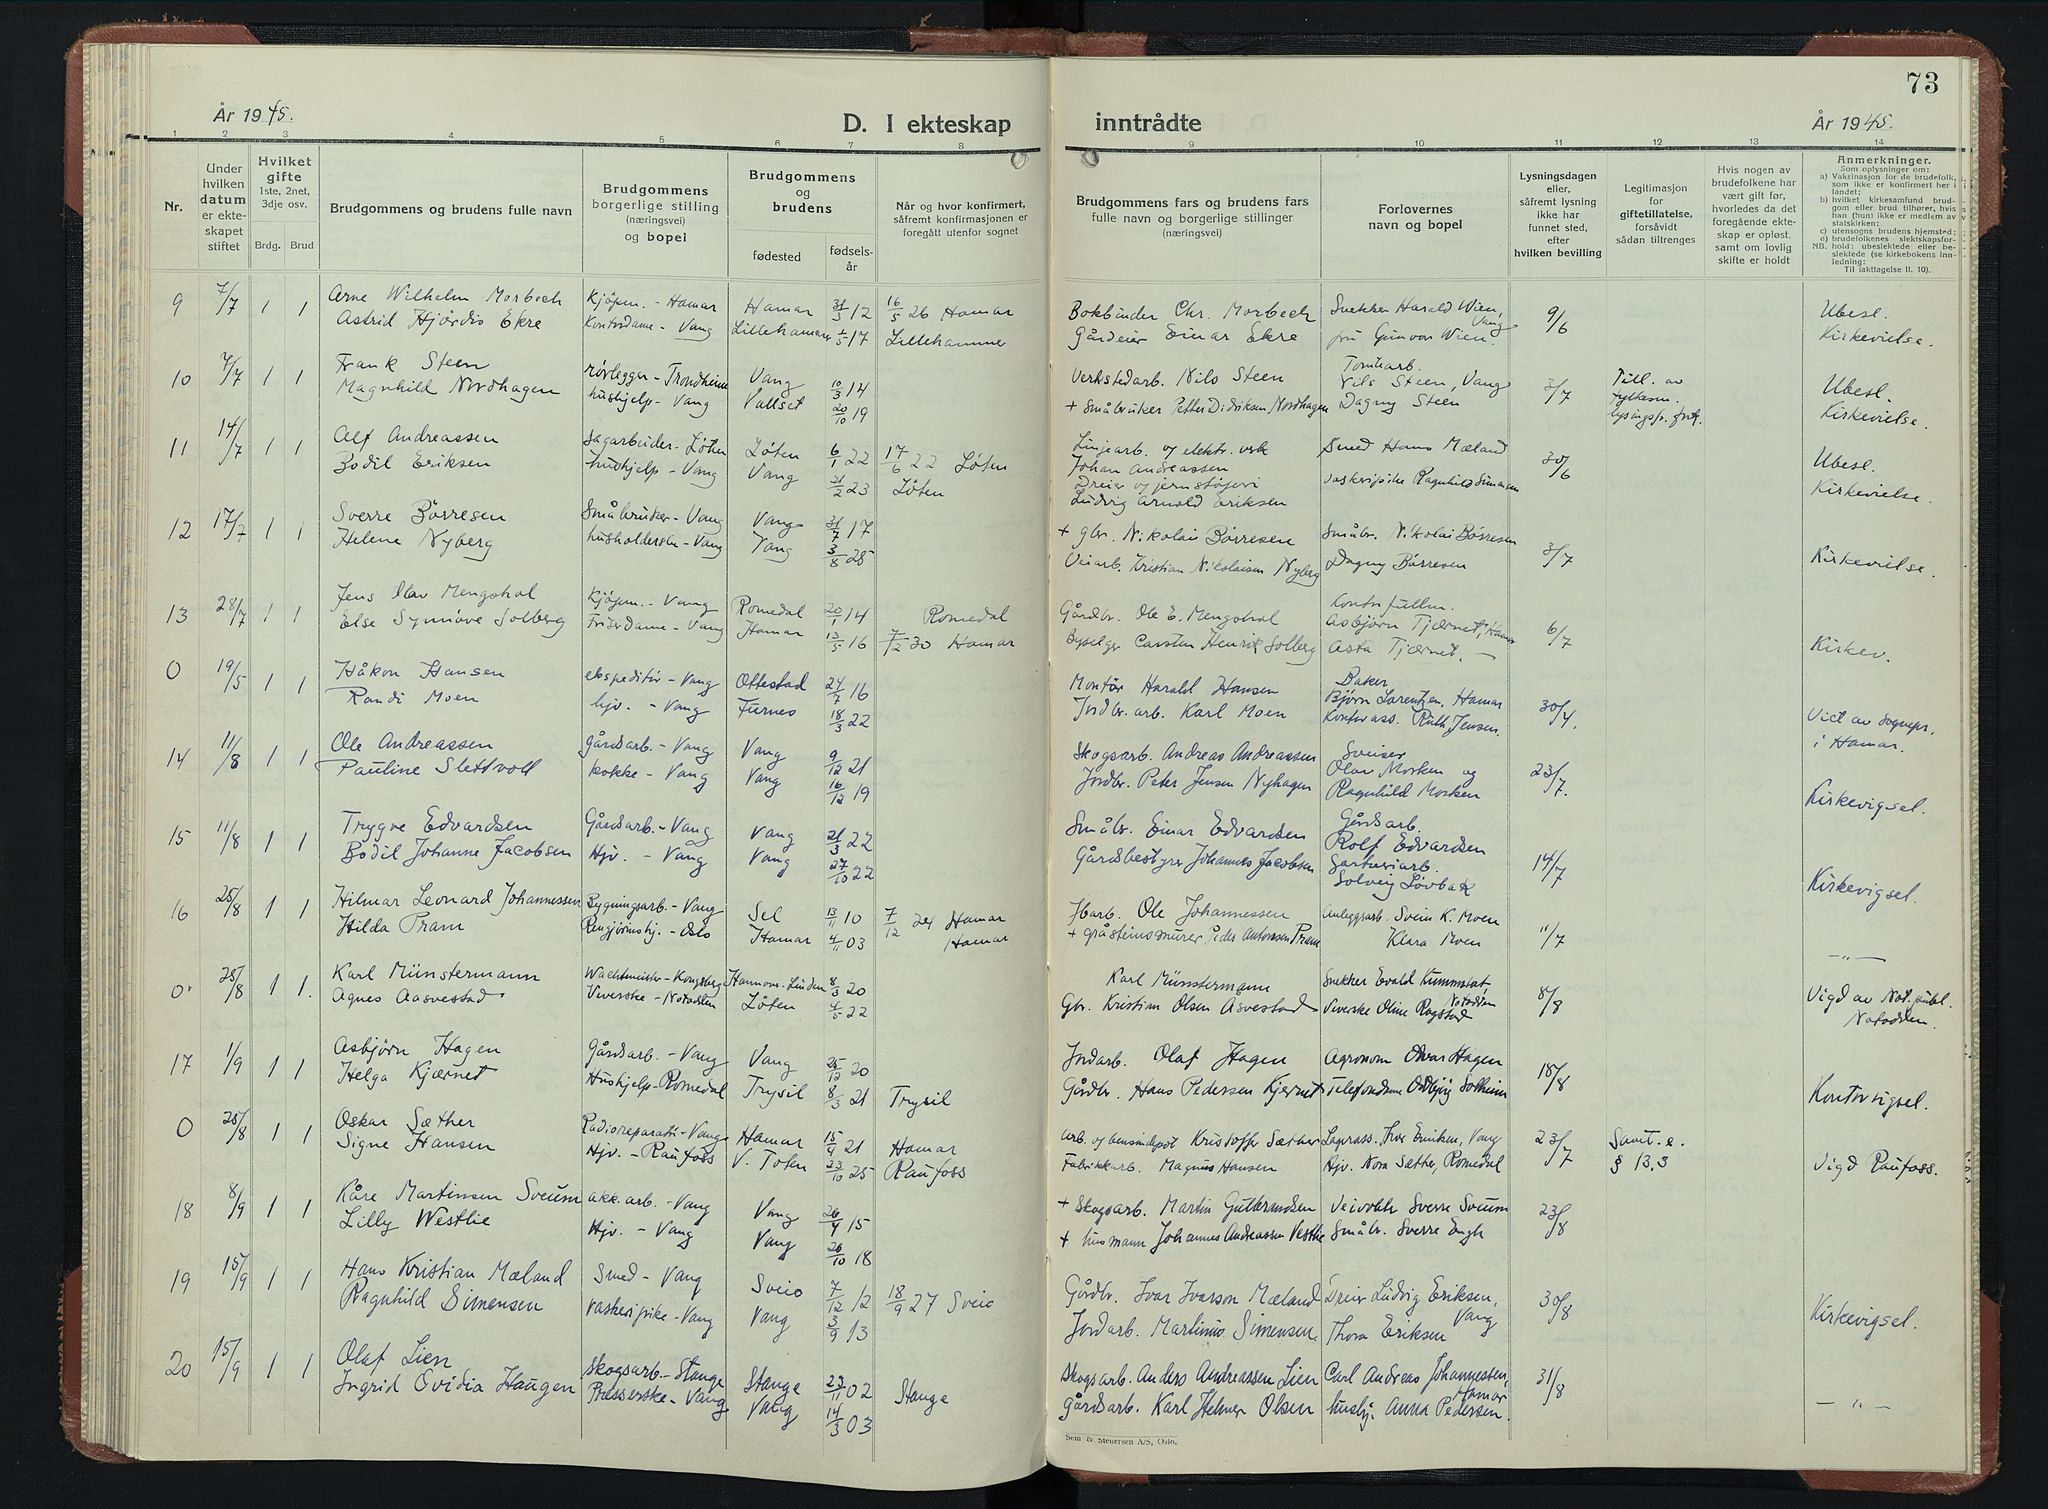 73
År 1945.
D. I ekteskap
inntrådte
År 1945.
1 2 3 4 5 6 7 8 9 10 11 12 13 14
Nr.
Under hvilken datum er ekteskapet stiftet
Hvilket gifte 1ste, 2net, 3dje osv.
Brdg. Brud
Brudgommens og brudens fulle navn
Brudgommens borgerlige stilling (næringsvei) og bopel
Brudgommens og brudens
fødested
fødselsår
Når og hvor konfirmert, såfremt konfirmasjonen er foregått utenfor sognet
Brudgommens fars og brudens fars fulle navn og borgerlige stillinger (næringsvei)
Forlovernes navn og bopel
Lysningsdagen eller, såfremt lysning ikke har funnet sted, efter hvilken bevilling
Legitimasjon for giftetillatelse, forsåvidt sådan tiltrenges
Hvis nogen av brudefolkene har vært gift før, hvorledes da det foregående ekteskap er opløst, samt om lovlig skifte er holdt
Anmerkninger.
Som oplysninger om:
a) Vaksinasjon for de brudefolk, som ikke er konfirmert her i landet;
b) hvilket kirkesamfund brudgom eller brud tilhører, hvis han (hun) ikke er medlem av statskirken;
c) utensogns brudens hjemsted;
d) brudefolkenes slektskapsforhold: ubeslektede eller beslektede (se kirkebokens innledning:
NB. Til iakttagelse II. 10).
9 7/7 1 1 Arne Wilhelm Morbech Kjøpm. - Hamar Hamar 31/3 12 16/5 26 Hamar Bokbinder Chr. Morbech Snekker Harald Wien, Vang 9/6 Ubesl.
Astrid Hjørdis Ekre Kontordame - Vang Lillehammer 1/5 17 Lillehammer Gårdeier Einar Ekre fru Gunvor Wien. Kirkevielse.
10 7/7 1 1 Frank Steen rørlegger - Trondheim Vang 10/3 14 Verkstedarb. Nils Steen Tomtearb. Nils Steen, Vang 3/7 Till. av fylkesm. Ubesl.
Magnhild Nordhagen hushjelp - Vang Vallset 20/10 19 + Småbruker Petter Didriksen Nordhagen Dagny Steen Kirkevielse.
11 14/7 1 1 Alf Andreassen Sagarbeider - Løten Løten 6/1 22 17/6 22 Løten Linjearb. og elektr. verk Johan Andreassen Smed Hans Mæland 30/6 Ubesl.
Bodil Eriksen hushjelp - Vang Vang 21/2 23 Løten Dreier og jernstøperi Ludvig Arnold Eriksen vaskeripike Ragnhild Simensen Kirkevielse.
12 17/7 1 1 Sverre Børresen Småbruker - Vang Vang 31/7 17 + gbr. Nikolai Børresen Småbr. Nikolai Børresen 3/7 Kirkevielse.
Helene Nyberg husholderske - Vang Vang 3/8 25 Veiarb. Kristian Nikolaisen Nyberg Dagny Børresen
13 28/7 1 1 Jens Olav Mengshol Kjøpm. - Vang Romedal 20/1 14 Romedal Gårdbr. Ole E. Mengshol Kontorfullm. Asbjørn Tjærnet, Hamar 6/7 Kirkev.
Else Synnøve Solberg Frisørdame - Vang Hamar 13/5 16 7/12 30 Hamar Byselger Carsten Henrik Solberg Asta Tjærnet, —
0 19/5 1 1 Håkon Hansen ekspeditør - Vang Ottestad 24/7 16 Montør Harald Hansen Baker Bjørn Lorentzen, Hamar 30/4. Viet av sognepr.
Randi Moen hjv. - Vang Furnes 18/3 22 Jordbr. arb. Karl Moen Kontorass. Ruth Jensen. i Hamar.
14 11/8 1 1 Ole Andreassen Gårdsarb. - Vang Vang 9/12 21 Skogsarb. Andreas Andreassen Sveiser Olav Morken og 23/7. Kirkevigsel.
Pauline Slettvoll kokke - Vang Vang 16/12 19 Jordbr. Peter Jensen Nyhagen Ragnhild Morken
15 11/8 1 1 Trygve Edvardsen Gårdsarb. - Vang Vang 21/3 22 Småbr. Einar Edvardsen Gårdsarb. Rolf Edvardsen 14/7 Kirkevigsel.
Bodil Johanne Jacobsen Hjv. - Vang Vang 27/10 22 Gårdsbestyrer Johannes Jacobsen Gartneriarb. Solveig Løvbak
16 25/8 1 1 Hilmar Leonard Johannessen Bygningsarb. - Vang Sel 13/11 10 7/12 24 Hamar Jbarb. Ole Johannessen Anleggsarb. Svein K. Moen 11/7 — " —
Hilda Pram Rengjøringshj. - Oslo Hamar 4/11 03 Hamar + gråsteinsmurer Peder Antonsen Pram Klara Moen
0 25/8 1 1. Karl Münstermann Wachtmeister - Kongsberg Hannover-Linden 8/3 20 Karl Münstermann Snekker Evald Kummstat, Notodden 8/8 Vigd av Not. publ.
Agnes Aasvestad Veverske - Notodden Løten 4/5 22 Gbr. Kristian Olsen Asvestad Veverske Oline Rogstad Notodden.
17 1/9 1 1 Asbjørn Hagen Gårdsarb. - Vang Vang 25/12 20 Jordarb. Olaf Hagen Agronom Olvar Hagen 18/8 Kontorvigsel.
Helga Kjærnet Hushjelp - Romedal Trysil 8/3 21 Trysil Gårdbr. Hans Pedersen Kjernet Telefondame Oddbjørg Solheim
0 25/8 1 1 Oskar Sæther Radioreparatør - Vang Hamar 15/9 21 Hamar arb. og bensindepot Kristoffer Sæther Lagerass. Thor Eriksen, Vang 23/7 Samt. e.
Signe Hansen Hjv. - Raufoss V. Toten 23/10 25 Raufoss Fabrikkarb. Magnus Hansen Hjv. Nora Sæther, Romedal § 13,3 Vigd Raufoss.
18 8/9 1 1 Kåre Martinsen Sveum akk. arb. - Vang Vang 26/4 15 + Skogsarb. Martin Guttormdsen Veivokter Sverre Sveum 23/8
Lilly Westlie Hjv. - Vang Vang 26/10 18 + husmann Johannes Andreassen Vestlie Småbr. Sverre Engh
19 15/9 1 1 Hans Kristian Mæland Smed - Vang Sveio 7/12 12 18/9 27 Sveio Gårdbr. Ivar Ivarson Mæland Dreier Ludvig Eriksen, Vang 30/8 Kirkevigsel.
Ragnhild Simensen vaskeripike - Vang Vang 3/9 13 Jordarb. Martinus Simensen. Thora Eriksen
20 15/9 1 1 Olaf Lien Skogsarb. - Stange Stange 23/11 02 Stange Skogsarb. Anders Andreassen Lien Carl Andreas Johannessen, Hamar 31/8 — " —
Ingrid Ovidia Haugen Presserske - Vang Vang 14/3 03 Gårdsarb. Karl Helmer Olsen hushj. Anna Pedersen.
Sem & Stenersen A/S, Oslo.